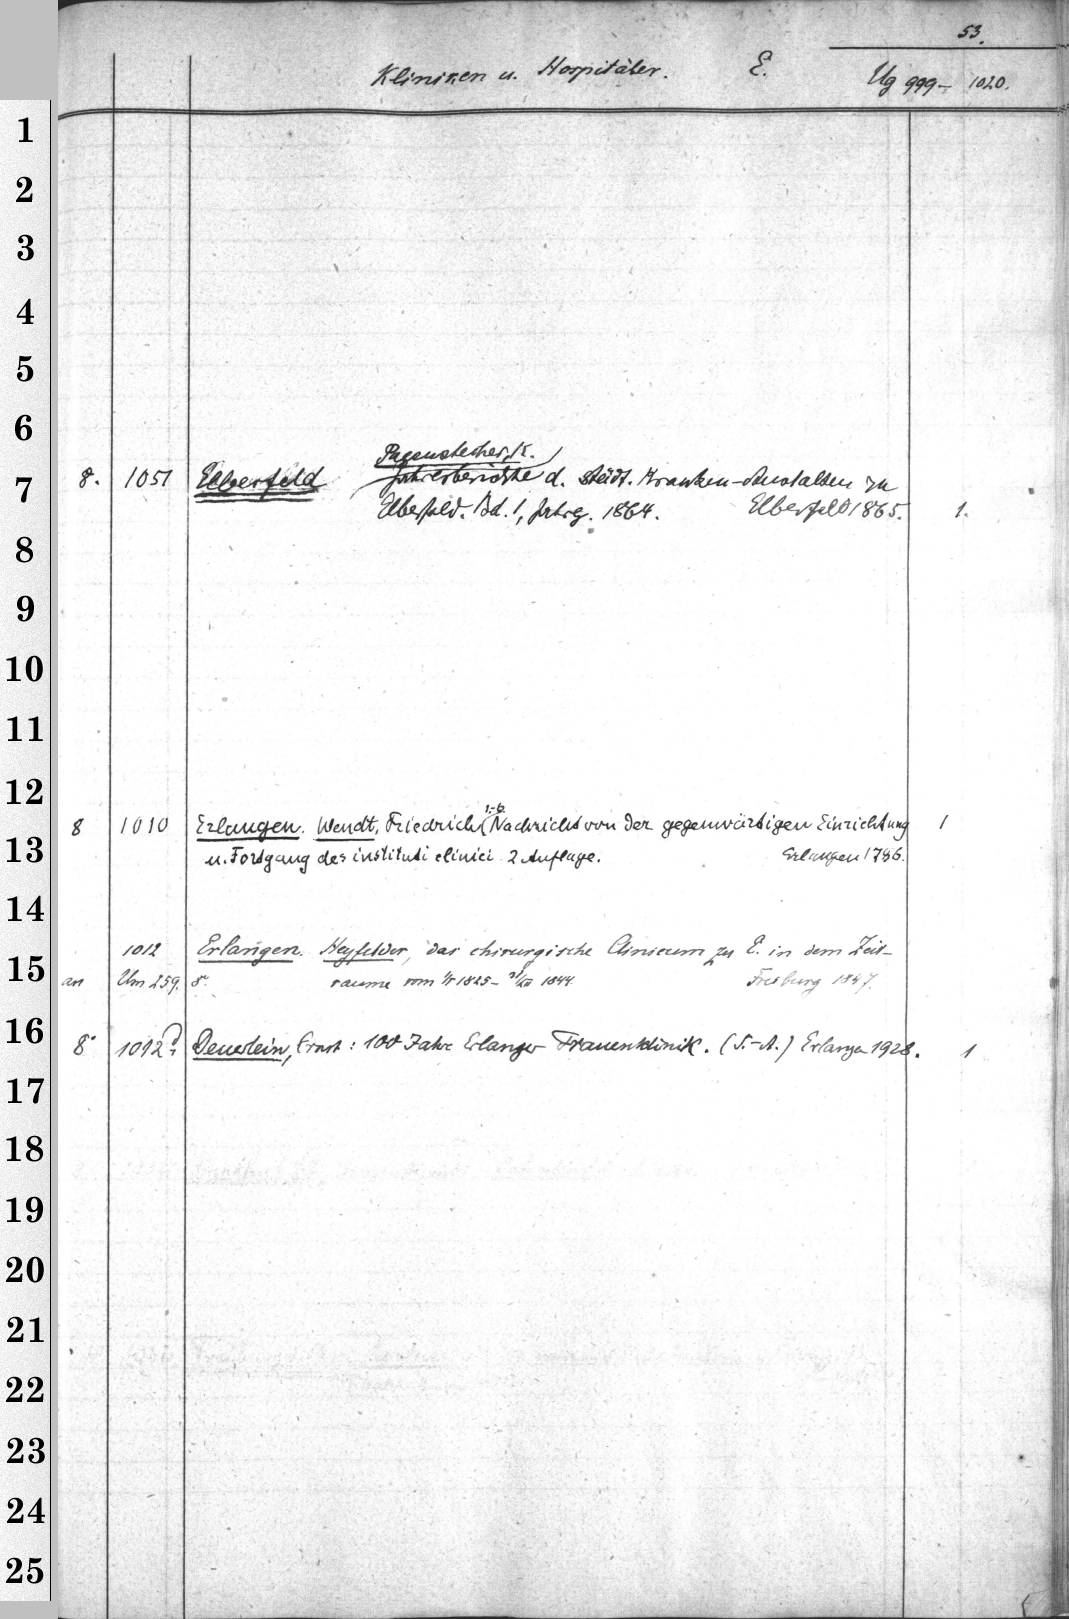 53.
Kliniken u. Hospitäler. E. Ug 999 – 1020.
1
2
3
4
5
6
Pagenstecher, K.
7 8. 1051 Elberfeld Jahresberichte d. städt. Kranken-Anstalten zu
Elberfeld. Bd. 1, Jahrg. 1864. Elberfeld 1865. 1.
8
9
10
11
12
8 1010 Erlangen. Wendt, Friedrich Nachricht von der gegenwärtigen Einrichtung 1
13 u. Fortgang des instituti clinici 2 Auflage. Erlangen 1786.
14
1012 Erlangen. Heyfelder, das chirurgische Clinicum zu E. in dem Zeit-
15 an Um 259. 8°. raume vom 1825 – 1844. Freiburg 1847.
16 8° 1012 Deuerlein, Ernst: 100 Jahre Erlanger Frauenklinik. (S.-A.) Erlangen 1928. 1
17
18
19
20
21
22
23
24
25